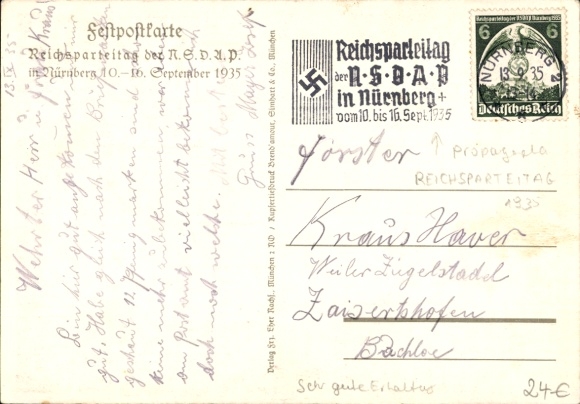 Festpostkarte
Reichsparteitag der N.S.D.A.P.
in Nürnberg 10.–16. September 1935
13.IX.35.
Wehrter Herr u. Frau Kraus!
Bin hier gut angekommen
gut. Habe gleich nach den
geschaut
keine mehr zu bekommen
am Postamt vielleicht bekomme ich
doch noch welche.
Gruss
Verlag Frz. Eher Nachf., München 2 NO / Kupfertiefdruck Brend'amour, Simhart & Co., München
Reichsparteitag
der N·S·D·A·P
in Nürnberg
vom 10. bis 16. Sept. 1935
Reichsparteitag der NSDAP in Nürnberg 1935
6 6
Deutsches Reich
NÜRNBERG 2
13.9.35
Förster
↑ Propaganda
REICHSPARTEITAG
1935
Kraus Xaver
Weiler Ziegelstadel
Zaisertshofen
Buchloe
Sehr gute Erhaltung
24-€